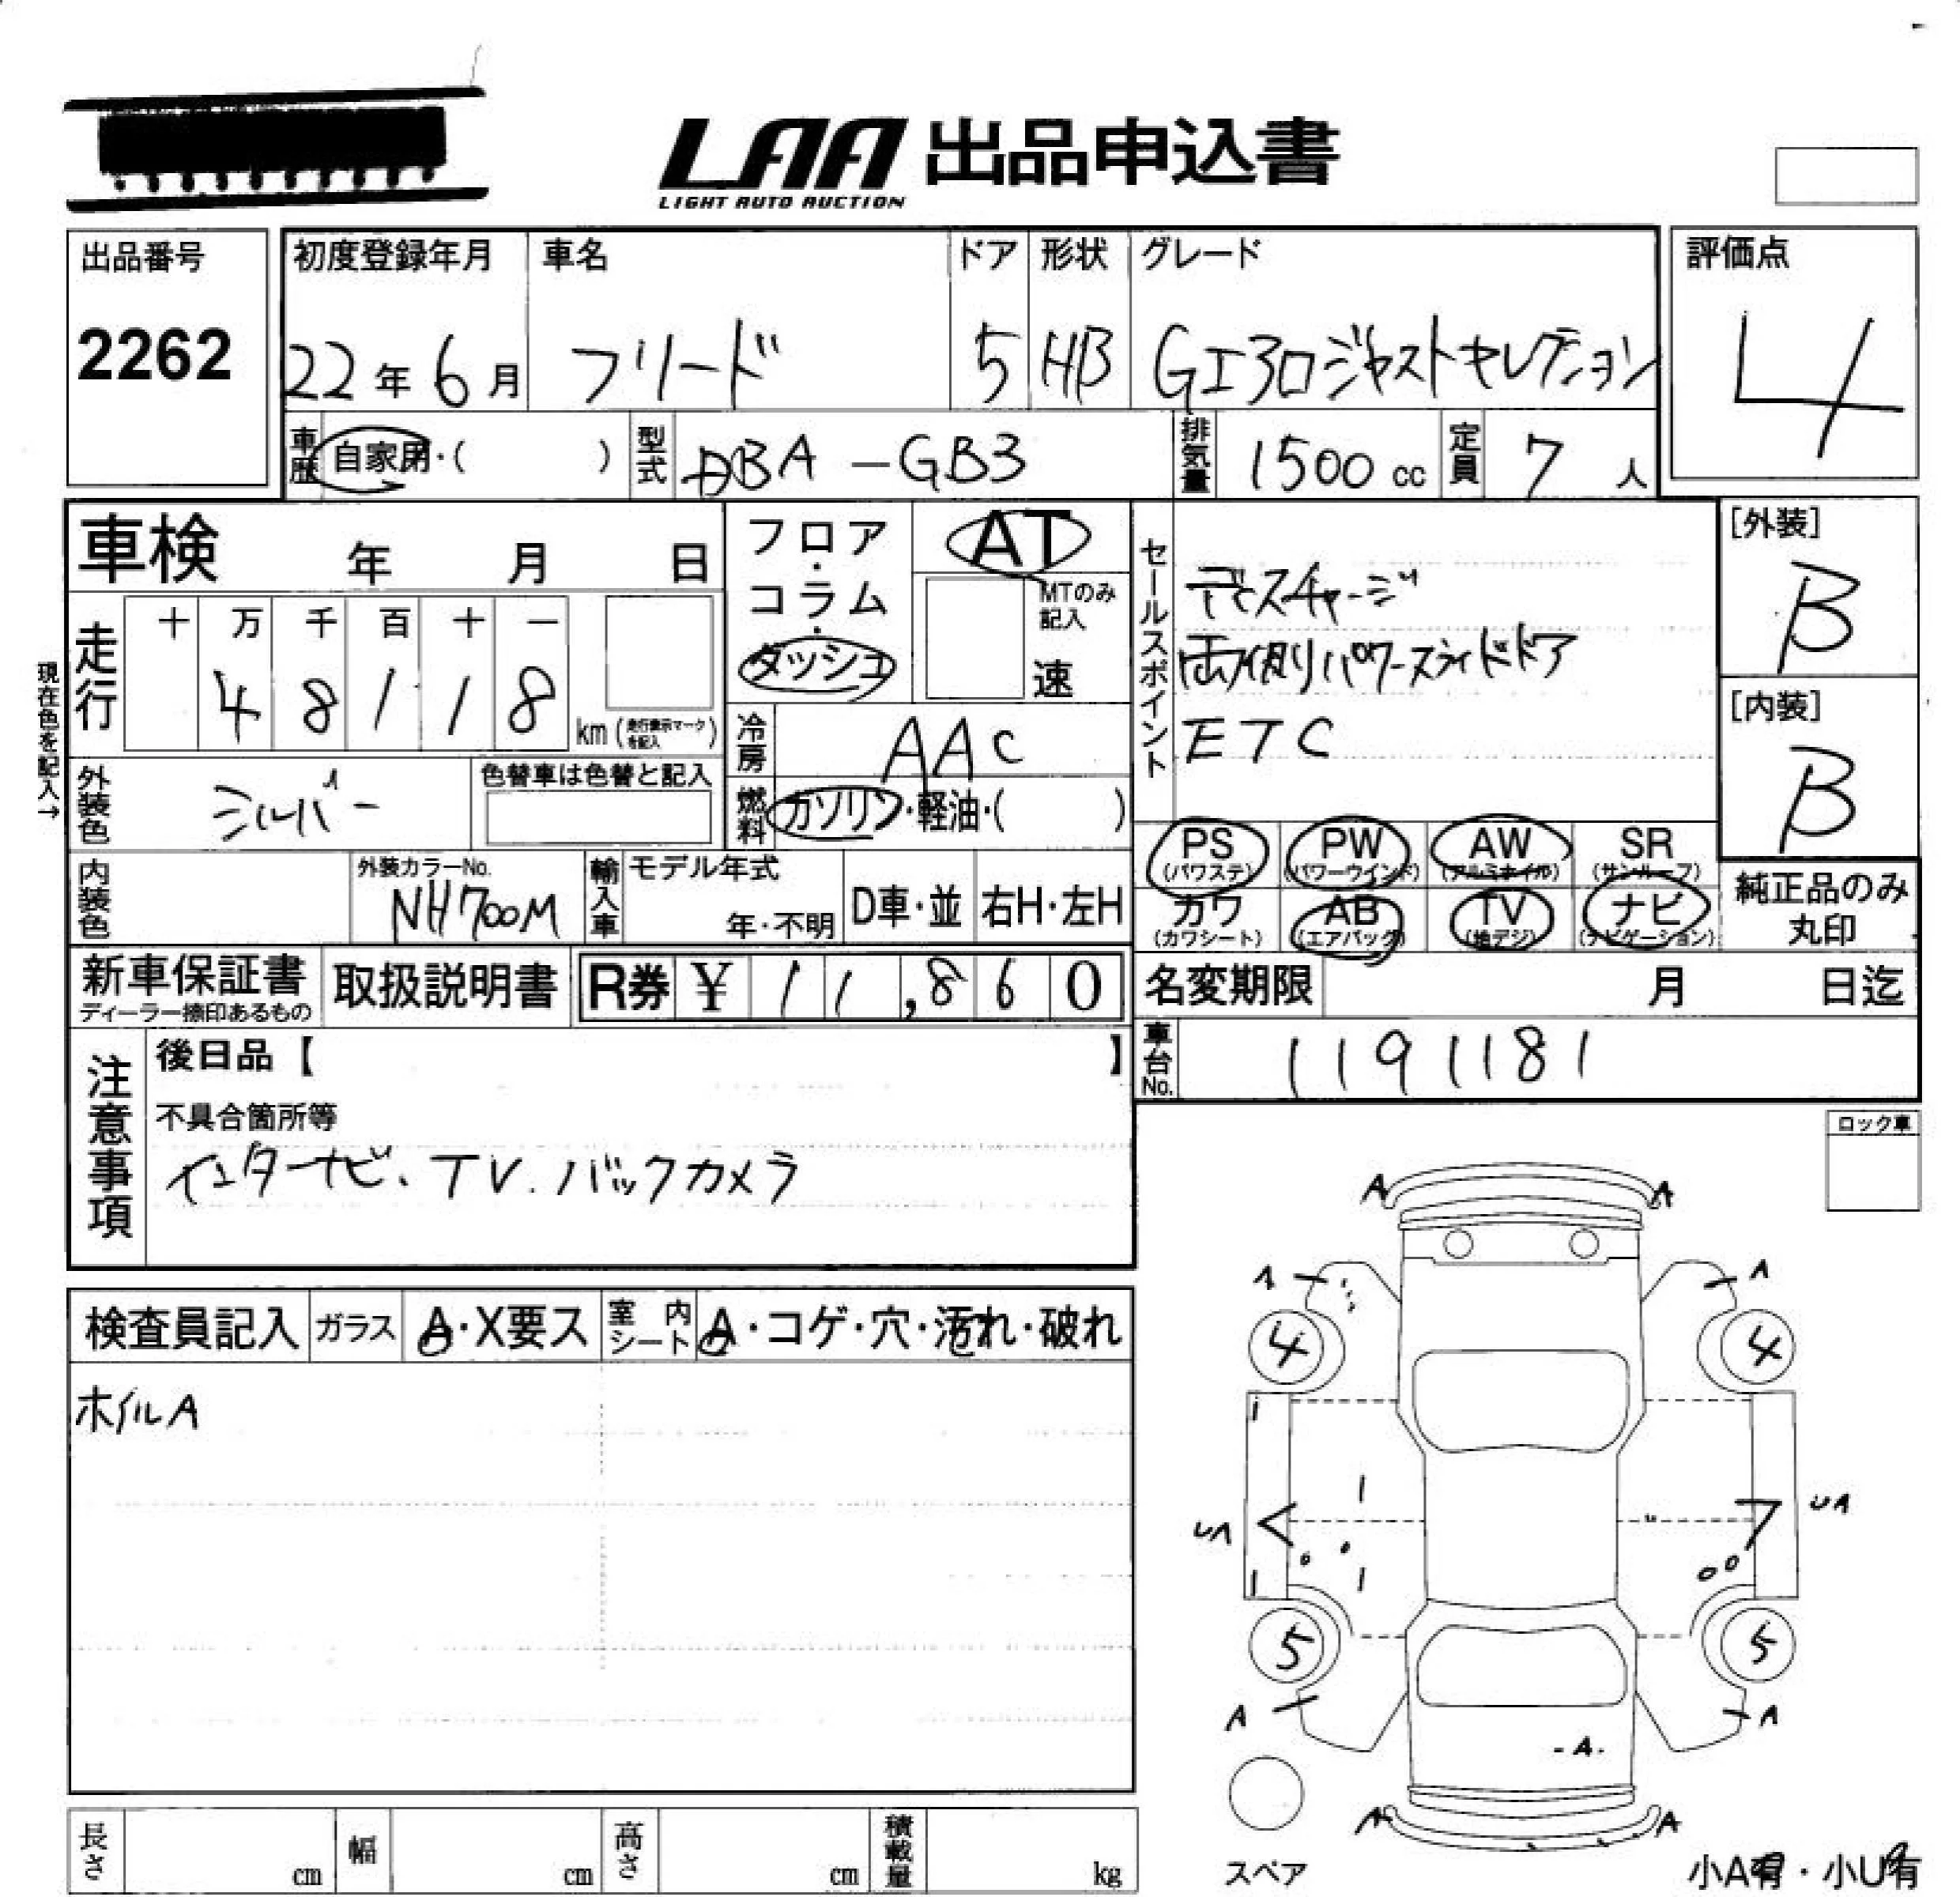 LAA 出品申込書
LIGHT AUTO AUCTION
出品番号 初度登録年月 車名 ドア 形状 グレード 評価点
2262 22年6月 フリード 5 HB GエアロジャストセレクションGI 4
車歴 自家用・( ) 型式 DBA-GB3 排気量 1500cc 定員 7人
車検 年 月 日
フロア・コラム・ダッシュ
AT
MTのみ記入
速
セールスポイント
ディスチャージ
両側パワースライドドア
ETC
[外装]
B
[内装]
B
現在色を記入→
走行 十 万 千 百 十 一
4 8 1 1 8 km(走行表示マークを記入)
冷房 AAC
外装色 シルバー 色替車は色替と記入
燃料 ガソリン・軽油・( )
PS PW AW SR
(パワステ) (パワーウインド) (アルミホイル) (サンルーフ)
カワ AB TV ナビ
(カワシート) (エアバッグ) (地デジ) (ナビゲーション)
純正品のみ
丸印
内装色 外装カラーNo. NH700M 輸入車 モデル年式 年・不明 D車・並 右H・左H
新車保証書 取扱説明書 R券 ¥ 11,860
ディーラー捺印あるもの
名変期限 月 日迄
車台No. 1191181
注意事項
後日品【 】
不具合箇所等
インターナビ、TV.バックカメラ
ロック車
検査員記入 ガラス A・X要ス 室内シート A・コゲ・穴・汚れ・破れ
ホイルA
A A
A A
4 4
UA UA
5 5
A A
A
A A
スペア
小A有・小U有
長さ cm 幅 cm 高さ cm 積載量 kg